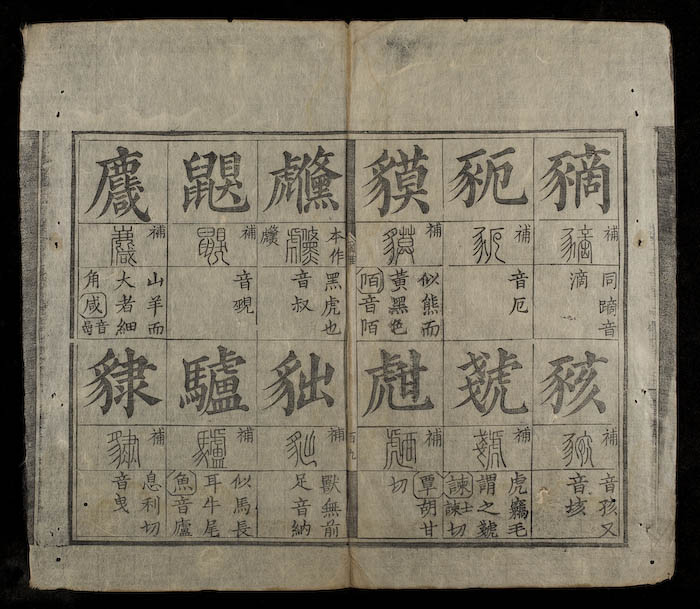 豴
補
同蹢音
滴
豟
補
音厄
貘
補
似熊而
黃黑色
陌音陌
豥
補
音孩又
音垓
虥
補
虎竊毛
謂之虥
諫士諫切
甝
補
覃胡甘
切
百九
虪
本作
黑虎也
音叔
鼰
補
音覡
麙
補
山羊而
大者細
角咸音嵒
貀
補
獸無前
足音納
驢
補
似馬長
耳牛尾
魚音廬
貄
補
息利切
音曳